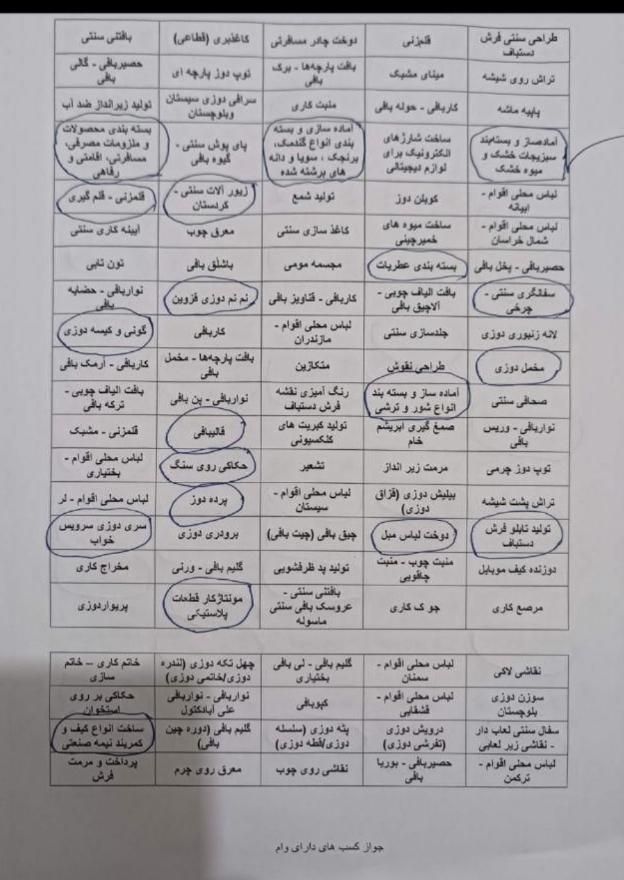 طراحی سنتی فرش دستباف
قلمزنی
دوخت چادر مسافرتی
کاغذبری (قطاعی)
بافتنی سنتی
تراش روی شیشه
مینای مشبک
بافت پارچه‌ها - برک بافی
توپ دوز پارچه ای
حصیربافی - گالی بافی
پاپیه ماشه
کارباقی - حوله بافی
منبت کاری
سرافی دوزی سیستان وبلوچستان
تولید زیرانداز ضد آب
آماده‌ساز و بسته‌بند سبزیجات خشک و میوه خشک
ساخت شارژهای الکترونیک برای لوازم دیجیتالی
آماده سازی و بسته بندی انواع گندمک، برنجک، سویا و دانه های برشته شده
پای پوش سنتی - گیوه بافی
بسته بندی محصولات و ملزومات مصرفی، مسافرتی، اقامتی و رفاهی
لباس محلی اقوام - ابیانه
کوبلن دوز
تولید شمع
زیور آلات سنتی - کردستان
قلمزنی - قلم گیری
لباس محلی اقوام - شمال خراسان
ساخت میوه های خمیرچینی
کاغذ سازی سنتی
معرق چوب
آیینه کاری سنتی
حصیربافی - پخل بافی
بسته بندی عطریات
مجسمه مومی
باشلق بافی
تون تابی
سفالگری سنتی - چرخی
بافت الیاف چوبی - آلاچیق بافی
کاربافی - قناویز بافی
نم نم دوزی قزوین
نواربافی - حضایه بافی
لانه زنبوری دوزی
جلدسازی سنتی
لباس محلی اقوام - مازندران
کاربافی
گونی و کیسه دوزی
مخمل دوزی
طراحی نقوش
متکازین
بافت پارچه‌ها - مخمل بافی
کاربافی - آرمک بافی
صحافی سنتی
آماده ساز و بسته بند انواع شور و ترشی
رنگ آمیزی نقشه فرش دستباف
نواربافی - پن بافی
بافت الیاف چوبی - ترکه بافی
نواربافی - وریس بافی
صمغ گیری ابریشم خام
تولید کبریت های کلکسیونی
قالیبافی
قلمزنی - مشبک
توپ دوز چرمی
مرمت زیر انداز
تشعیر
حکاکی روی سنگ
لباس محلی اقوام - بختیاری
تراش پشت شیشه
بیلیش دوزی (قزاق دوزی)
لباس محلی اقوام - سیستان
پرده دوز
لباس محلی اقوام - لر
تولید تابلو فرش دستباف
دوخت لباس مبل
چیق بافی (چیت بافی)
برودری دوزی
سری دوزی سرویس خواب
دوزنده کیف موبایل
منبت چوب - منبت چاقویی
تولید پد ظرفشویی
گلیم بافی - ورنی
مخراج کاری
مرصع کاری
جو ک کاری
بافتنی سنتی - عروسک بافی سنتی ماسوله
مونتاژکار قطعات پلاستیکی
پریواردوزی
نقاشی لاکی
لباس محلی اقوام - سمنان
گلیم بافی - لی بافی بختیاری
چهل تکه دوزی (لندره دوزی/خاتمی دوزی)
خاتم کاری – خاتم سازی
سوزن دوزی بلوچستان
لباس محلی اقوام - قشقایی
کپوبافی
نواربافی - نواربافی علی آبادکتول
حکاکی بر روی استخوان
سفال سنتی لعاب دار - نقاشی زیر لعابی
درویش دوزی (تفرشی دوزی)
پته دوزی (سلسله دوزی/قطه دوزی)
گلیم بافی (دوره چین بافی)
ساخت انواع کیف و کمربند نیمه صنعتی
لباس محلی اقوام - ترکمن
حصیربافی - بوریا بافی
نقاشی روی چوب
معرق روی چرم
پرداخت و مرمت فرش
جواز کسب های دارای وام